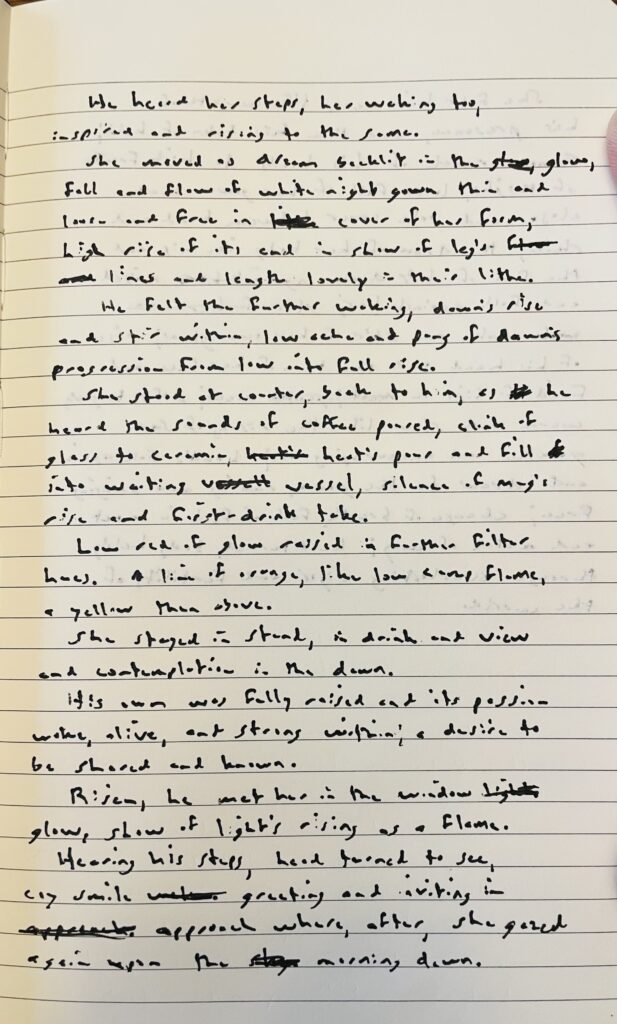 He heard her steps, her waking too,
inspired and rising to the same.
She moved as dream backlit in the glow,
fall and flow of white nightgown thin and
loose and free in cover of her form,
high rise of its end in show of legs
lines and length lovely in their lithe.
He felt the further waking, dawn's rise
and stir within, low ache and pang of dawn's
progression from low into full rise.
She stood at counter, back to him, as he
heard the sounds of coffee poured, clink of
glass to ceramic, heat's pour and fill
into waiting vessel, silence of mug's
rise and first-drink take.
Low red of glow raised in further filter
hues. A line of orange, like low flame,
a yellow then above.
She stayed in stead, in drink and view
and contemplation in the dawn.
His own was fully raised and its passion
woke, alive, and strong within; a desire to
be shared and known.
Risen, he met her in the window
glow, show of light's rising as a flame.
Hearing his steps, head turned to see,
coy smile greeting and inviting in
approach where, after, she gazed
again upon the morning dawn.